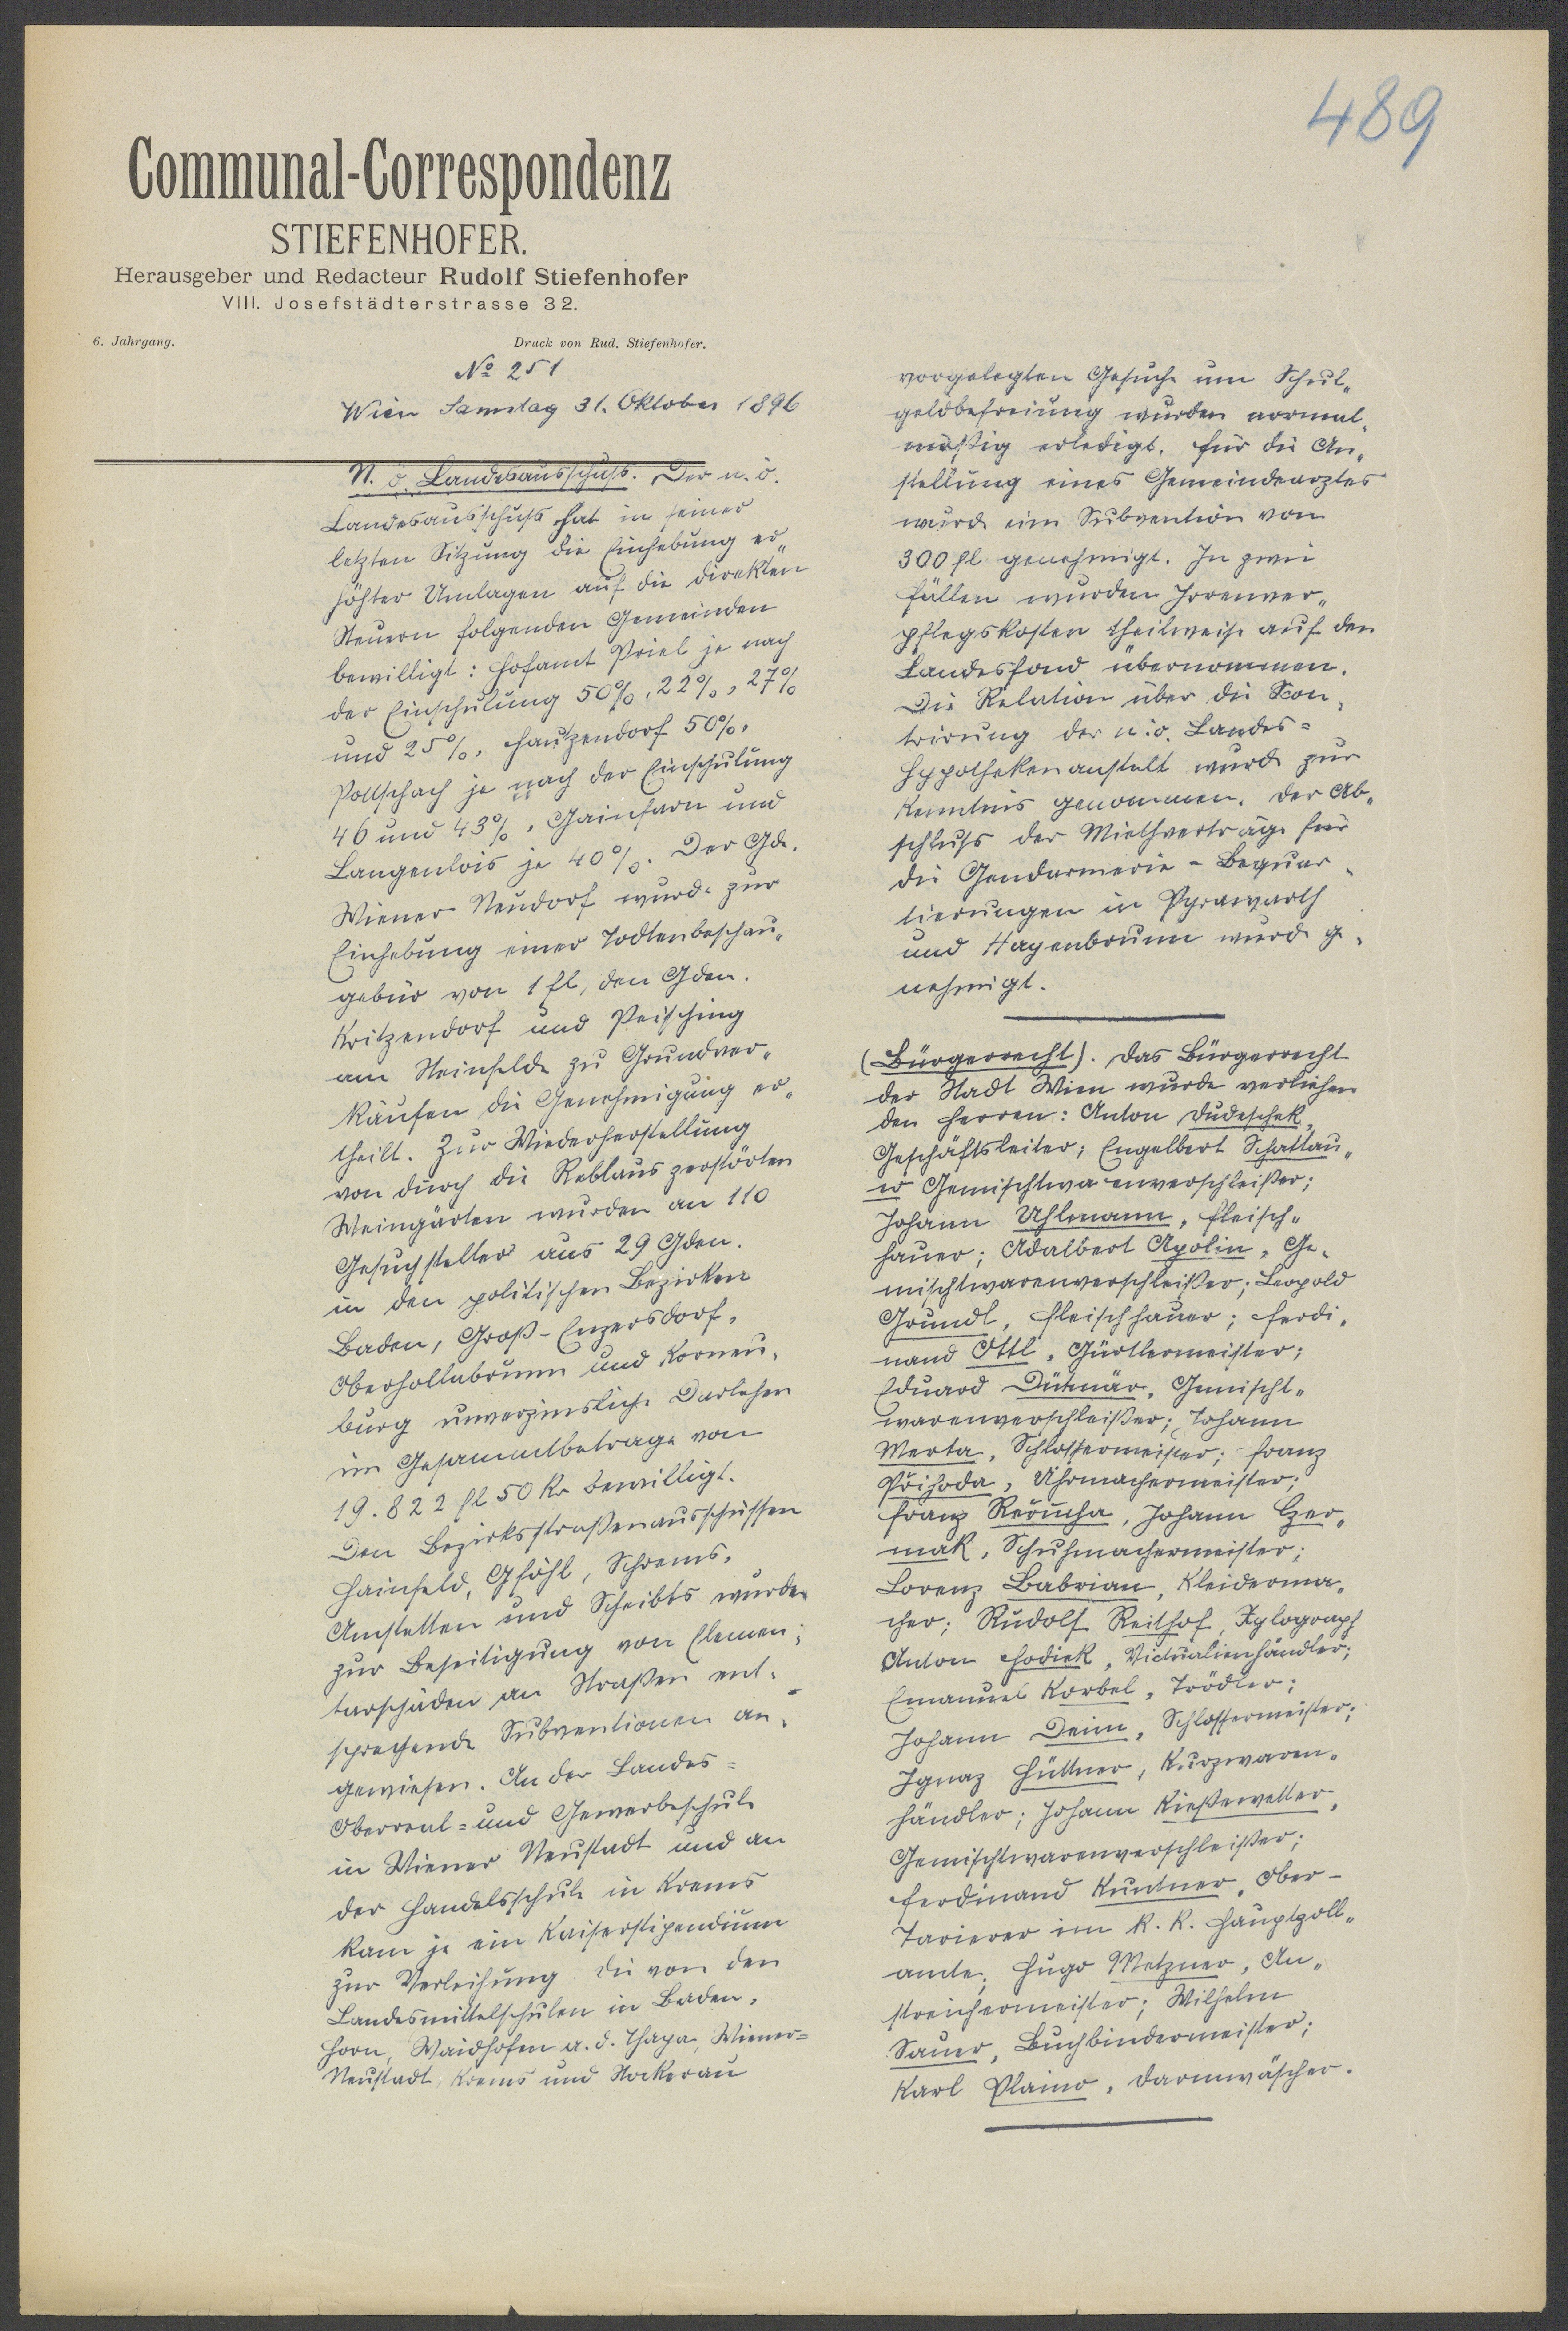 489
Communal-Correspondenz
STIEFENHOFER.
Herausgeber und Redacteur Rudolf Stiefenhofer
VIII. Josefstädterstrasse 32.
6. Jahrgang.
Druck von Rud. Stiefenhofer.
No 251
Wien Samstag 31. Oktober 1896
N. ö. Landesausschuß. Der n. ö.
Landesausschuß hat in seiner
letzten Sitzung die Einhebung er„
höhter Umlagen auf die direkten
Steuern folgenden Gemeinden
bewilligt: Hofamt Priel je nach
der Einschulung 50%, 22%, 27%
und 25%, Hautzendorf 50%,
Pottschach je nach der Einschulung
46 und 43%, Gainfarn und
Langenlois je 40%. Der Gde.
Wiener Neudorf wurde zur
Einhebung einer Todtenbeschau„
gebür von 1 fl, den Gden.
Kritzendorf und Peisching
am Steinfelde zu Grundver„
käufen die Genehmigung er„
theilt. Zur Wiederherstellung
von durch die Reblaus zerstörten
Weingärten wurden an 110
Gesuchsteller aus 29 Gden.
in den politischen Bezirken
Baden, Groß-Enzersdorf,
Oberhollabrunn und Korneu„
burg unverzinsliche Darlehen
im Gesammtbetrage von
19.822 fl 50 kr bewilligt.
Den Bezirksstraßenausschüssen
Hainfeld, Gföhl, Schrems,
Amstetten und Scheibbs wurden
zur Beseitigung von Elemen„
tarschäden an Straßen ent„
sprechende Subventionen an„
gewiesen. An der Landes=
Oberreal= und Gewerbeschule
in Wiener Neustadt und an
der Handelsschule in Krems
kam je ein Kaiserstipendium
zur Verleihung die von den
Landesmittelschulen in Baden,
Horn, Waidhofen a. d. Thaya, Wiener=
Neustadt, Krems und Stockerau
vorgelegten Gesuche um Schul„
geldbefreiung wurden normal„
mäßig erledigt. Für die An„
stellung eines Gemeindearztes
wurde eine Subvention von
300 fl genehmigt. In zwei
Fällen wurden Irrenver„
pflegskosten theilweise auf den
Landesfond übernommen.
Die Relation über die Skon„
trirung der n. ö. Landes=
Hypothekenanstalt wurde zur
Kenntnis genommen. Der Ab„
schluß der Miethverträge für
die Gendarmerie-Bequar„
tierungen in Pyrawarth
und Hagenbrunn wurde ge„
nehmigt.
(Bürgerrecht). Das Bürgerrecht
der Stadt Wien wurde verliehen
den Herren: Anton Dudeschek,
Geschäftsleiter; Engelbert Schattau„
er Gemischtwarenverschleißer;
Johann Uhlmann, Fleisch„
hauer; Adalbert Apolin, Ge„
mischtwarenverschleißer; Leopold
Grundl, Fleischhauer; Ferdi„
nand Ottl, Gürtlermeister;
Eduard Gemischt„
warenverschleißer; Johann
Merta, Schlossermeister; Franz
Přihoda, Uhrmachermeister;
Franz Johann Czer„
mak, Schuhmachermeister;
Lorenz Babrian, Kleiderma„
cher; Rudolf Reithof, Xylograph
Anton Hodiek, Victualienhändler;
Emanuel Korbel, Trödler;
Johann Deim, Schlossermeister;
Ignaz Hüttner, Kurzwaren„
händler; Johann Kießewetter,
Gemischtwarenverschleißer;
Ferdinand Kuntner, Ober-
Tarierer im k. k. Hauptzoll„
amte; Hugo Metzner, An„
streichermeister; Wilhelm
Sauer, Buchbindermeister;
Karl Plaino, Darmwäscher.